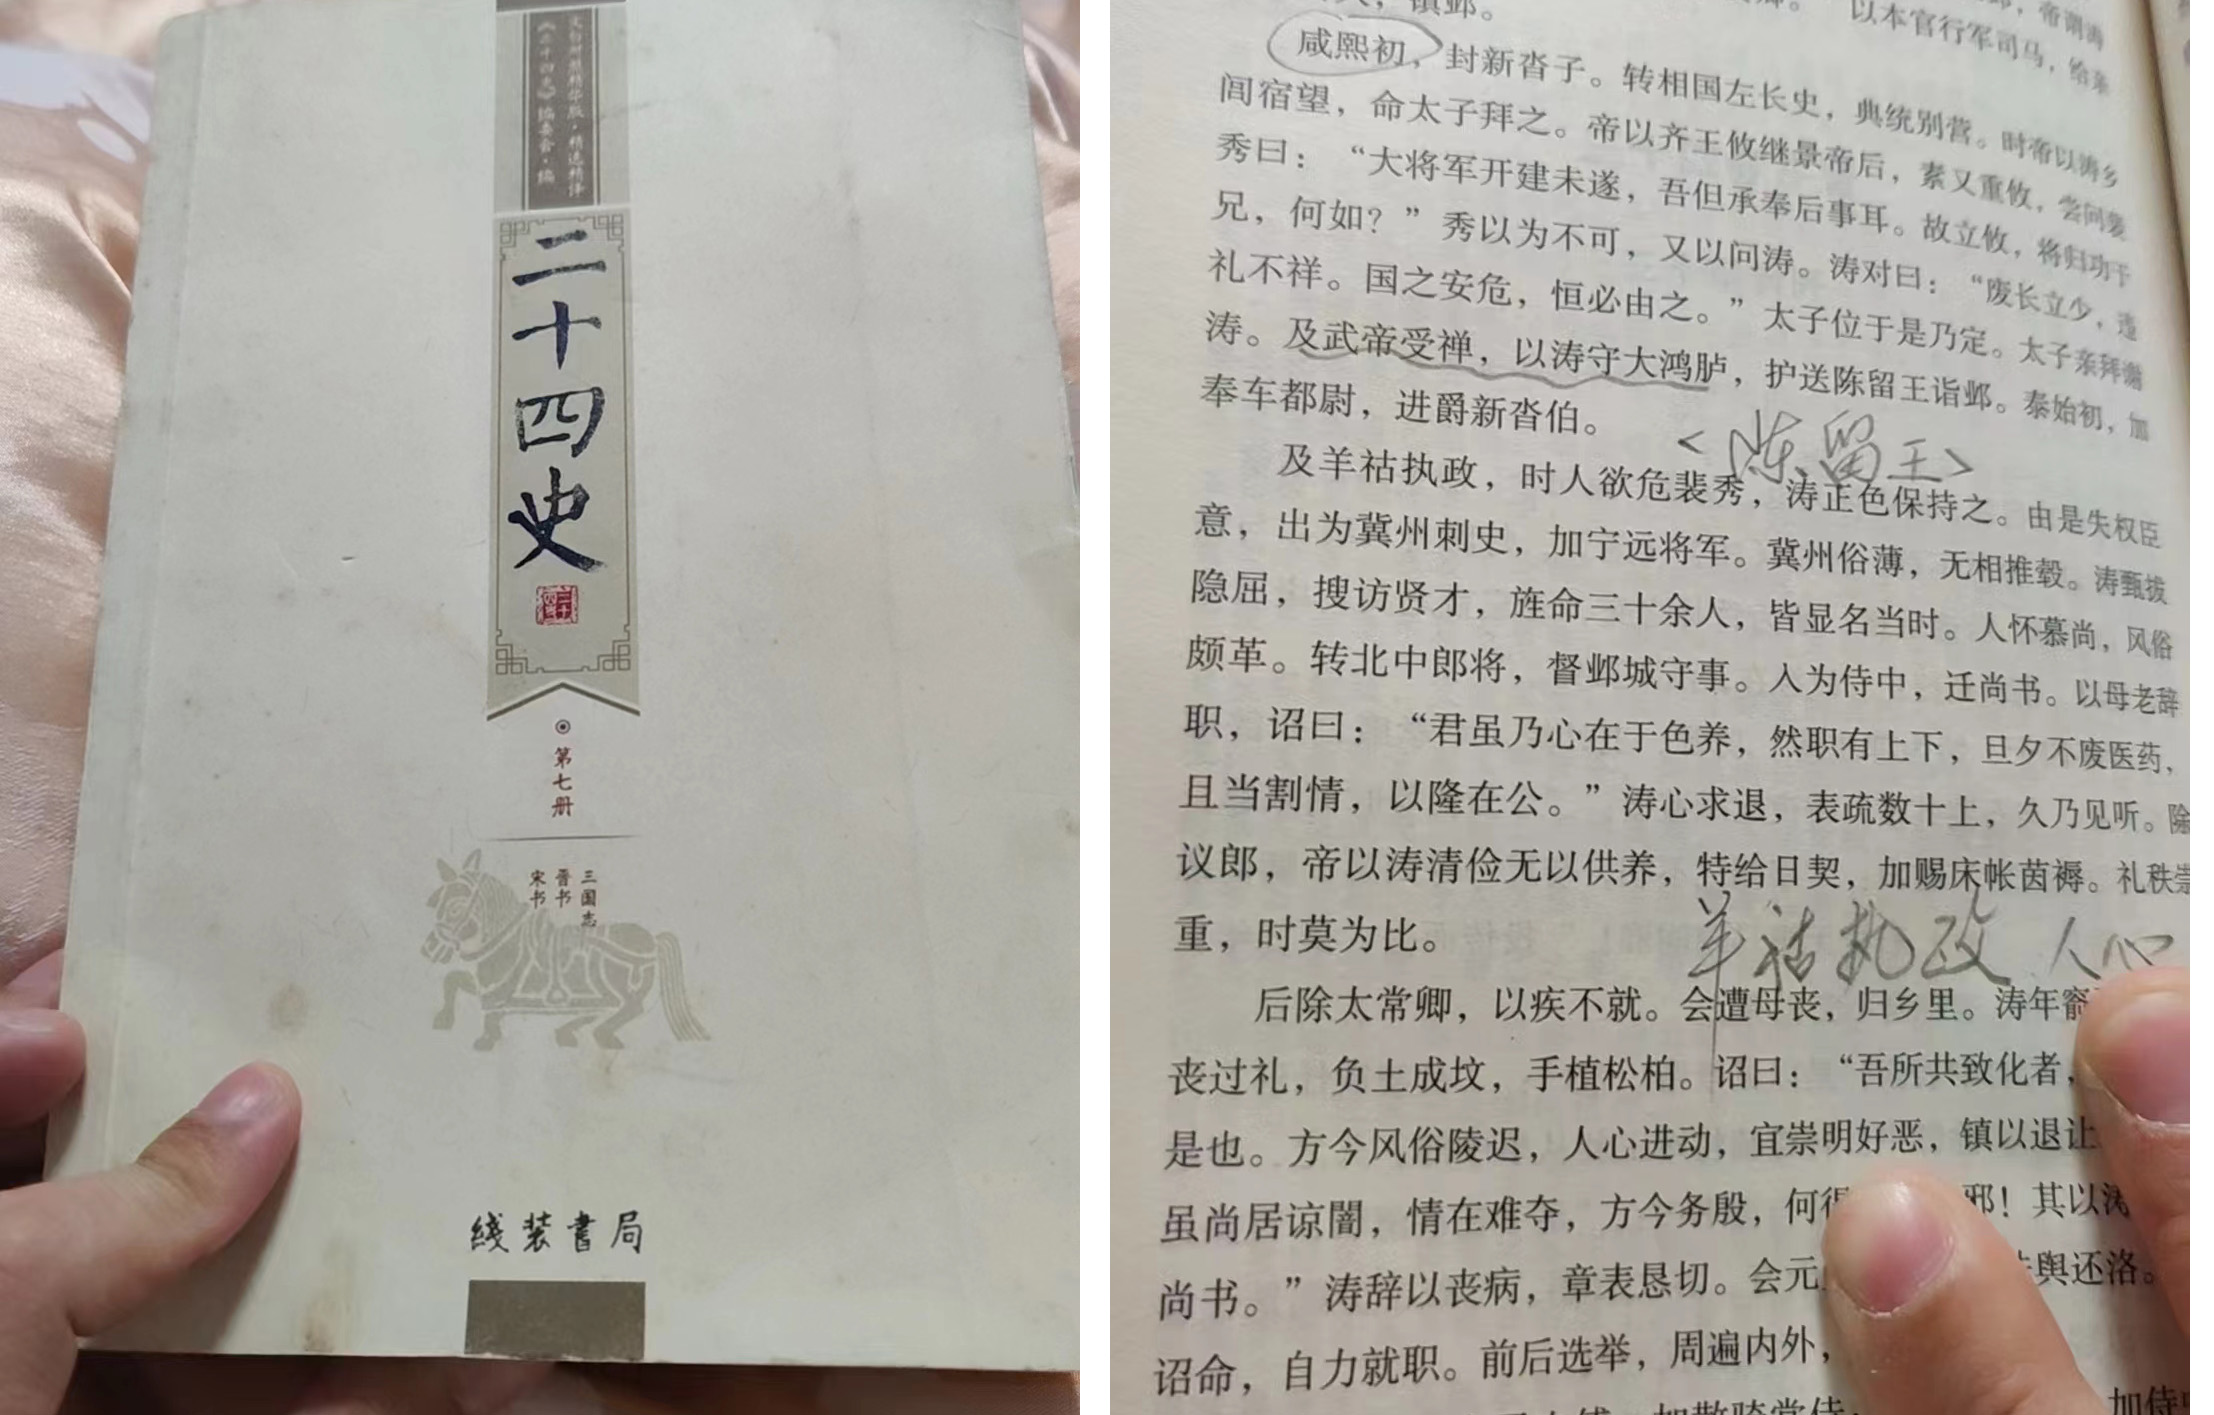 文白对照精华版·精选精译
《二十四史》编委会·编
二十四史
二十
四史
第七册
三国志
晋书
宋书
綫装書局
镇邺。
以本官行军司马，给亲
咸熙初，封新沓子。转相国左长史，典统别营。时帝以涛乡
闾宿望，命太子拜之。帝以齐王攸继景帝后，素又重攸，尝问裴
秀曰：“大将军开建未遂，吾但承奉后事耳。故立攸，将归功于
兄，何如？”秀以为不可，又以问涛。涛对曰：“废长立少，违
礼不祥。国之安危，恒必由之。”太子位于是乃定。太子亲拜谢
涛。及武帝受禅，以涛守大鸿胪，护送陈留王诣邺。泰始初，加
奉车都尉，进爵新沓伯。
<陈留王>
及羊祜执政，时人欲危裴秀，涛正色保持之。由是失权臣
意，出为冀州刺史，加宁远将军。冀州俗薄，无相推毂。涛甄拔
隐屈，搜访贤才，旌命三十余人，皆显名当时。人怀慕尚，风俗
颇革。转北中郎将，督邺城守事。入为侍中，迁尚书。以母老辞
职，诏曰：“君虽乃心在于色养，然职有上下，旦夕不废医药，
且当割情，以隆在公。”涛心求退，表疏数十上，久乃见听。除
议郎，帝以涛清俭无以供养，特给日契，加赐床帐茵褥。礼秩崇
重，时莫为比。
羊祜执政 人心
后除太常卿，以疾不就。会遭母丧，归乡里。涛年
丧过礼，负土成坟，手植松柏。诏曰：“吾所共致化者，
是也。方今风俗陵迟，人心进动，宜崇明好恶，镇以退让
虽尚居谅闇，情在难夺，方今务殷，何得 邪！其以涛
尚书。”涛辞以丧病，章表恳切。会元 舆还洛。
诏命，自力就职。前后选举，周遍内外，
加散骑常侍，
加侍